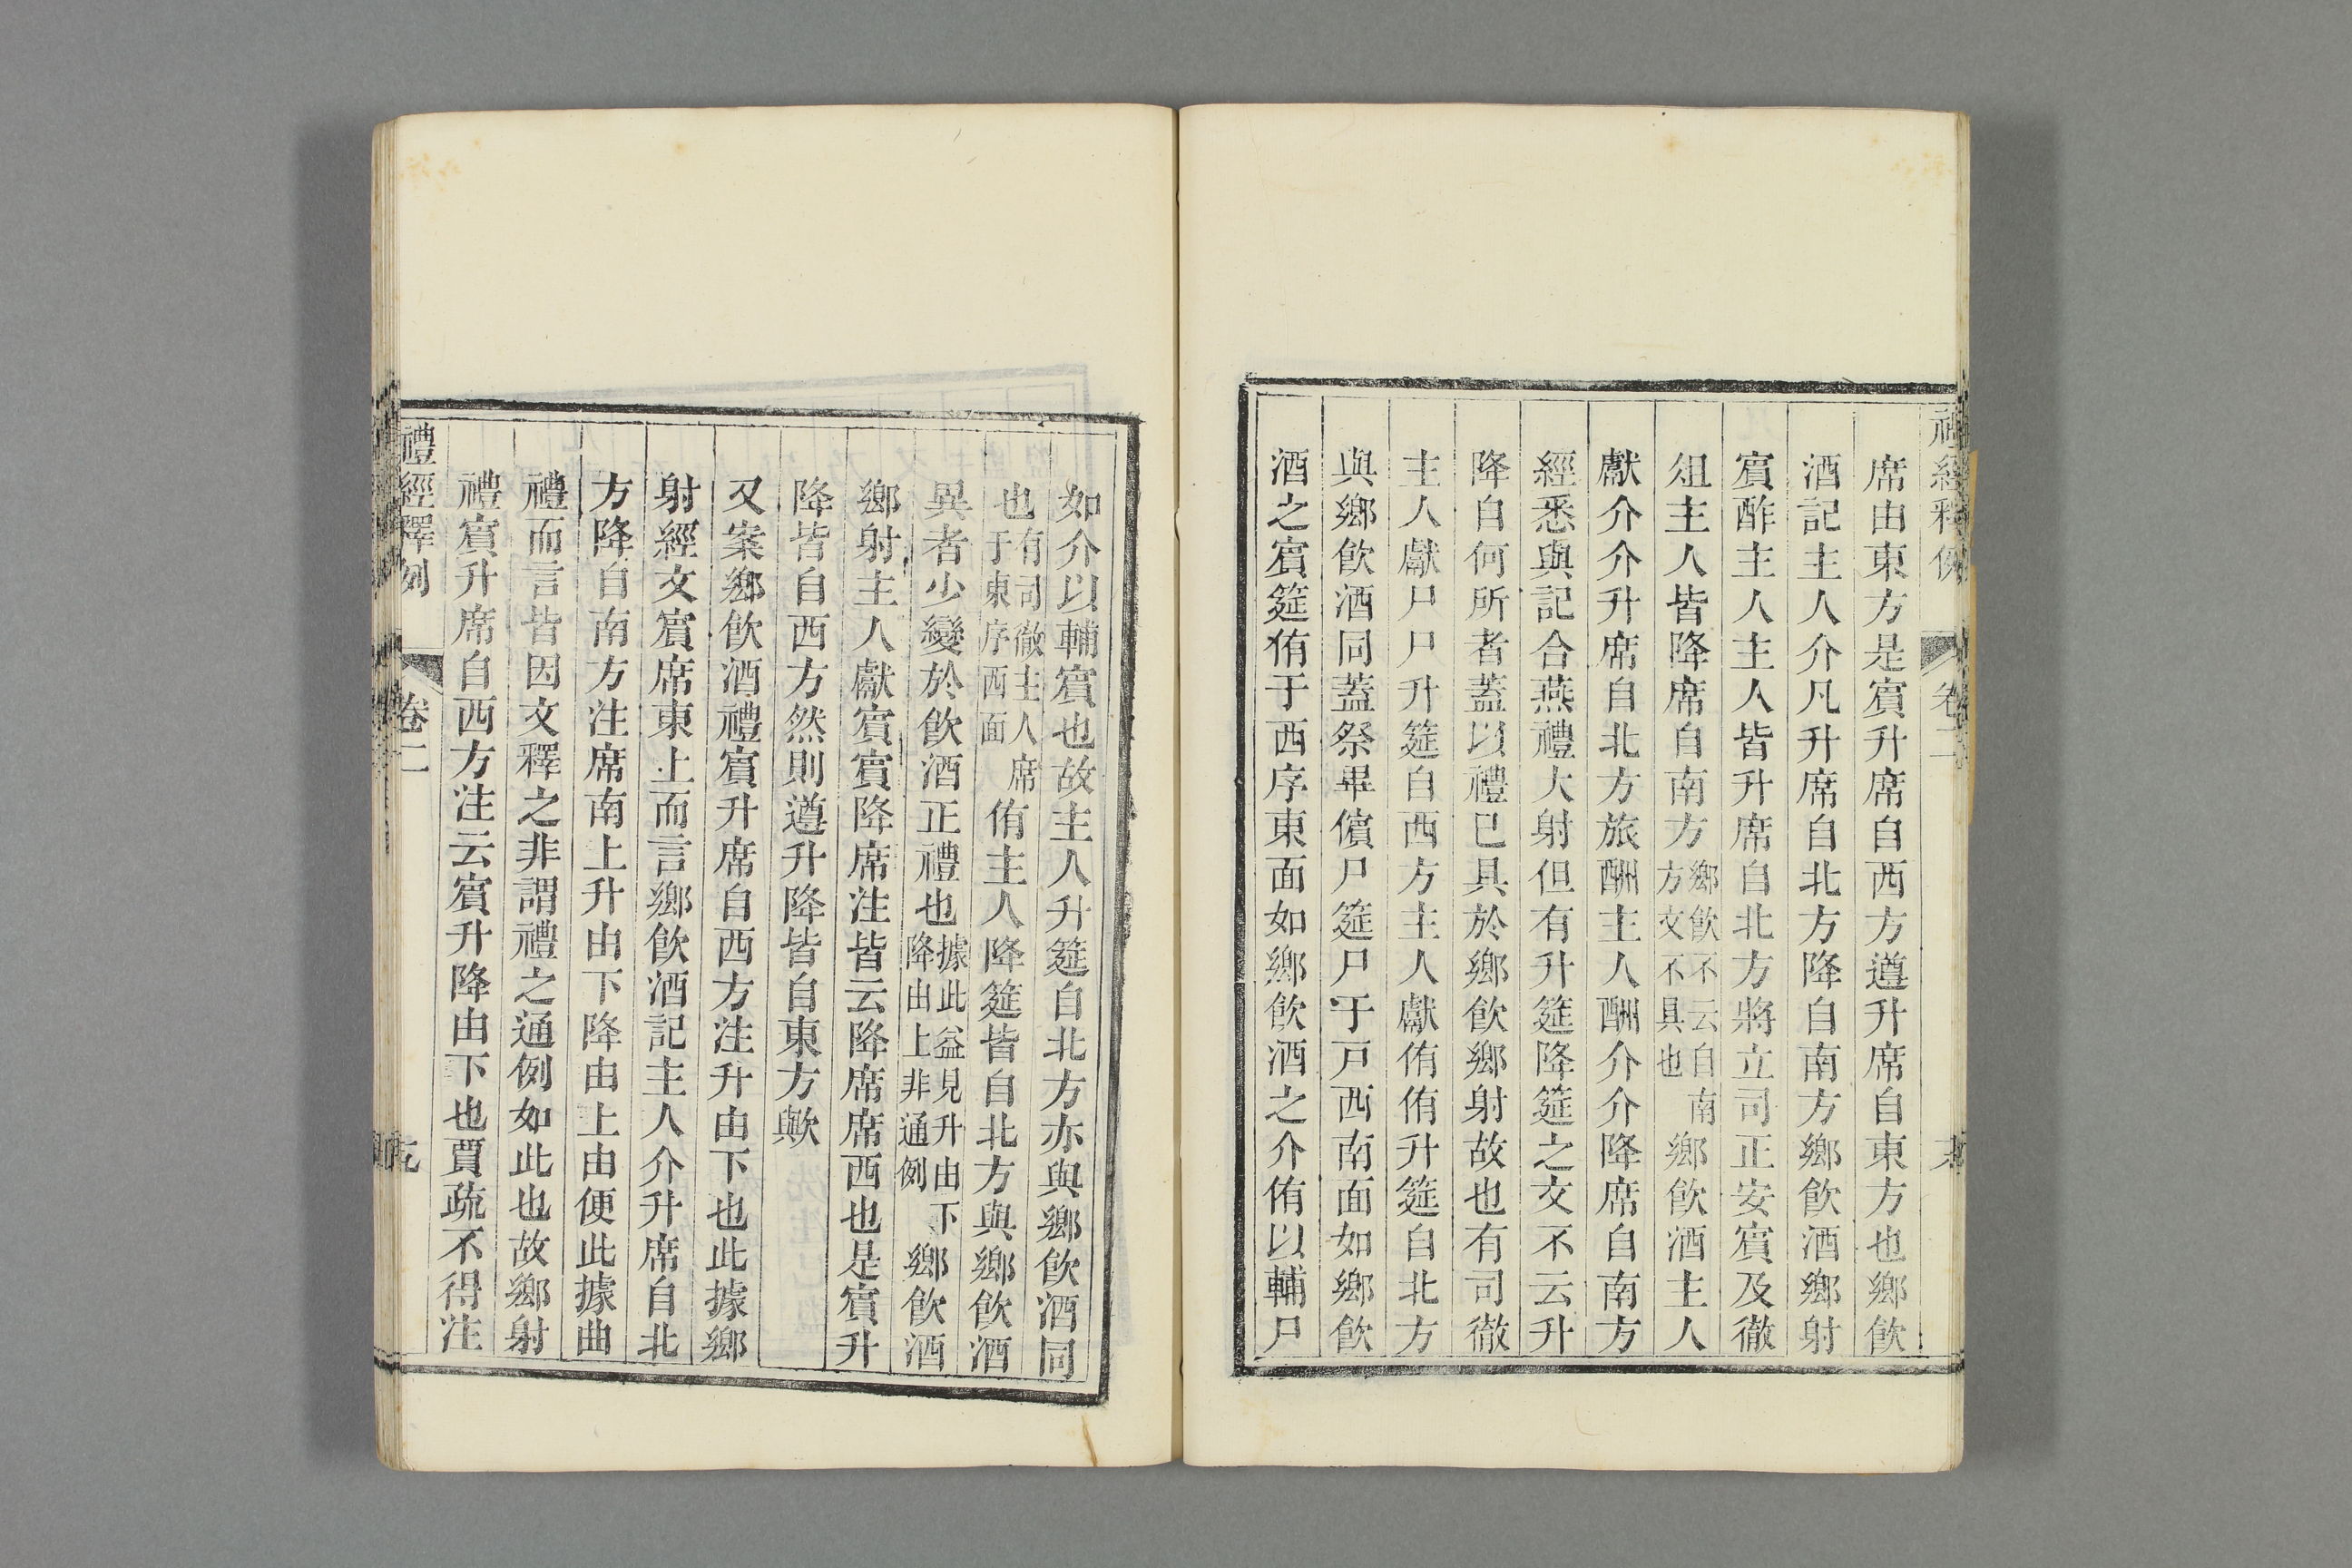 禮經釋例 卷二
席由東方是賓升席自西方遵升席自東方也鄉飲
酒記主人介凡升席自北方降自南方鄉飲酒鄉射
賓酢主人主人皆升席自北方將立司正安賓及徹
俎主人皆降席自南方鄉飲不云自南方文不具也鄉飲酒主人
獻介介升席自北方旅酬主人酬介介降席自南方
經悉與記合燕禮大射但有升筵降筵之文不云升
降自何所者蓋以禮已具於鄉飲鄉射故也有司徹
主人獻尸尸升筵自西方主人獻侑侑升筵自北方
與鄉飲酒同蓋祭畢儐尸筵尸于戸西南面如鄉飲
酒之賓筵侑于西序東面如鄉飲酒之介侑以輔尸
如介以輔賓也故主人升筵自北方亦與鄉飲酒同
也有司徹主人席于東序西面侑主人降筵皆自北方與鄉飲酒
異者少變於飲酒正禮也據此益見升由下降由上非通例鄉飲酒
鄉射主人獻賓賓降席注皆云降席席西也是賓升
降皆自西方然則遵升降皆自東方歟
又案鄉飲酒禮賓升席自西方注升由下也此據鄉
射經文賓席東上而言鄉飲酒記主人介升席自北
方降自南方注席南上升由下降由上由便此據曲
禮而言皆因文釋之非謂禮之通例如此也故鄉射
禮賓升席自西方注云賓升降由下也賈疏不得注
禮經釋例 卷二